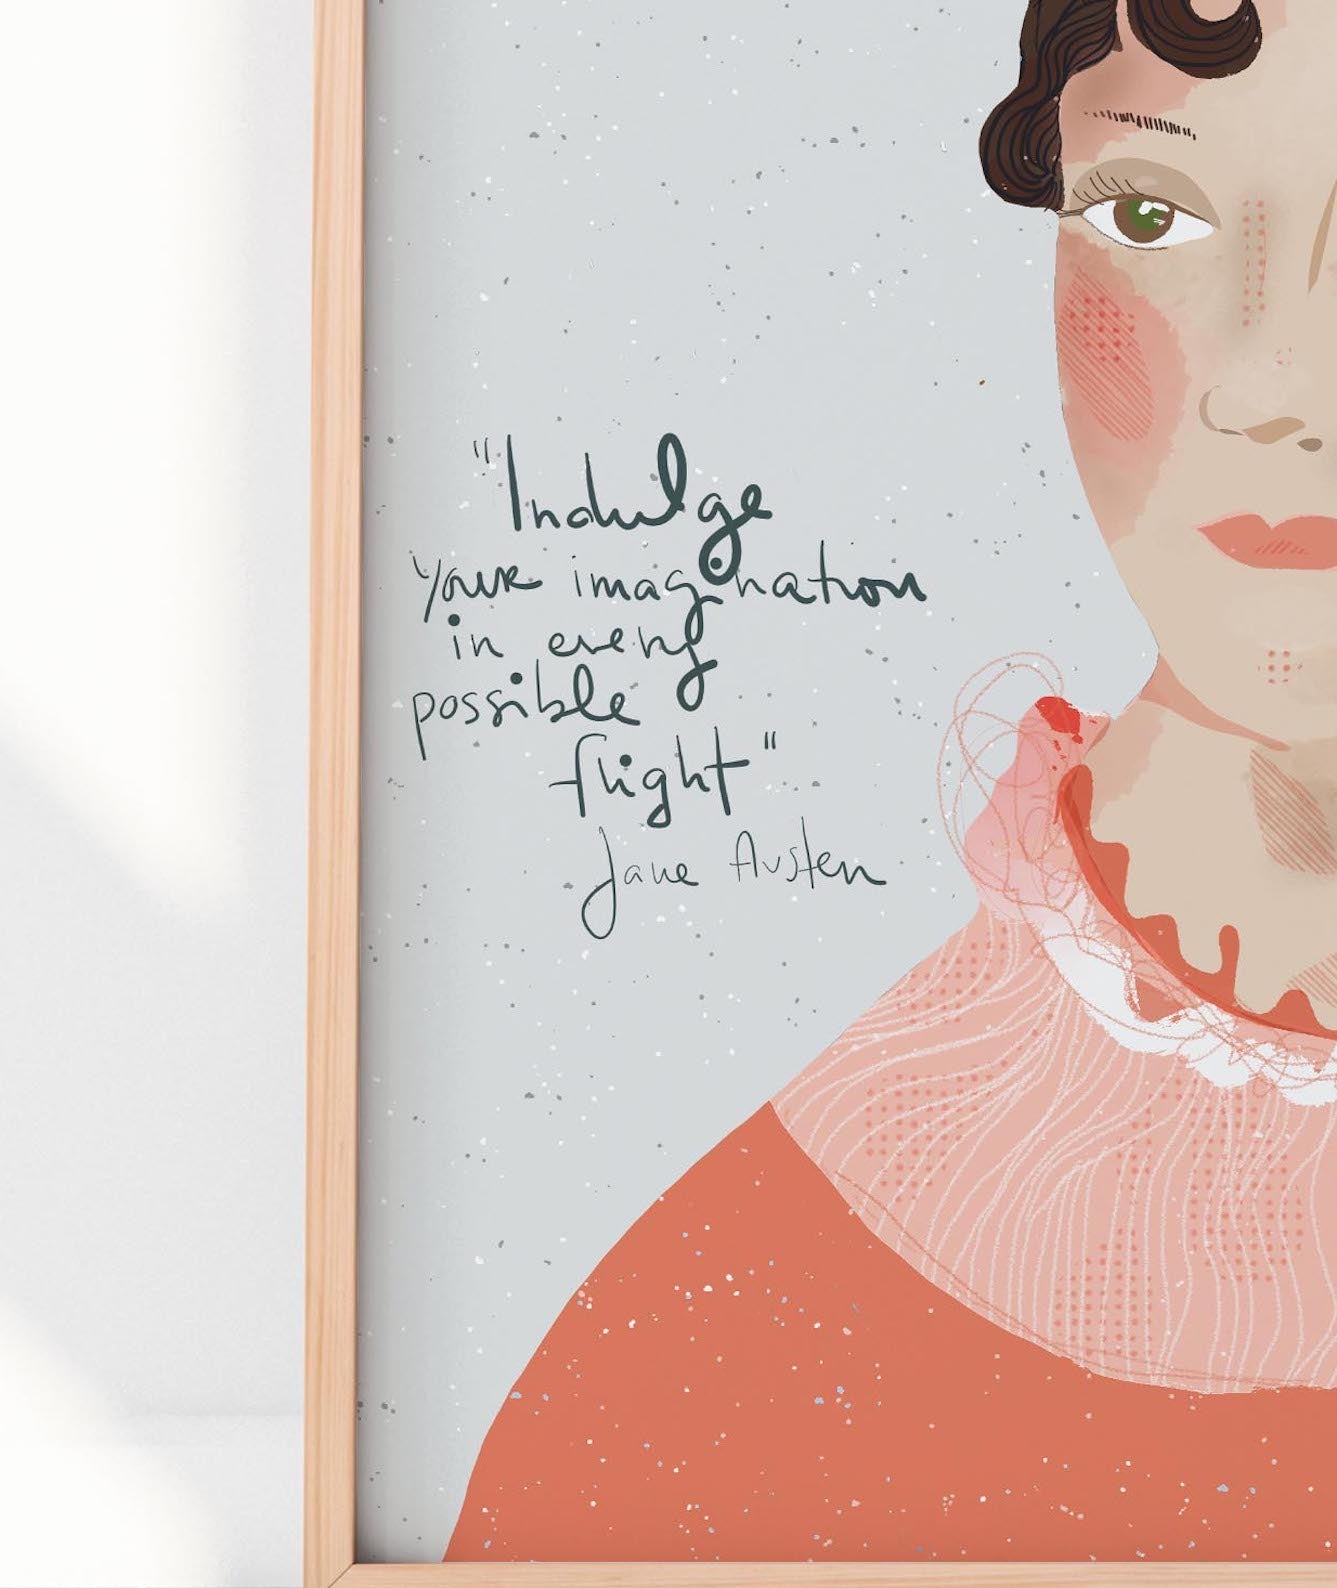 "Indulge
your imagination
in every
possible
flight"
Jane Austen